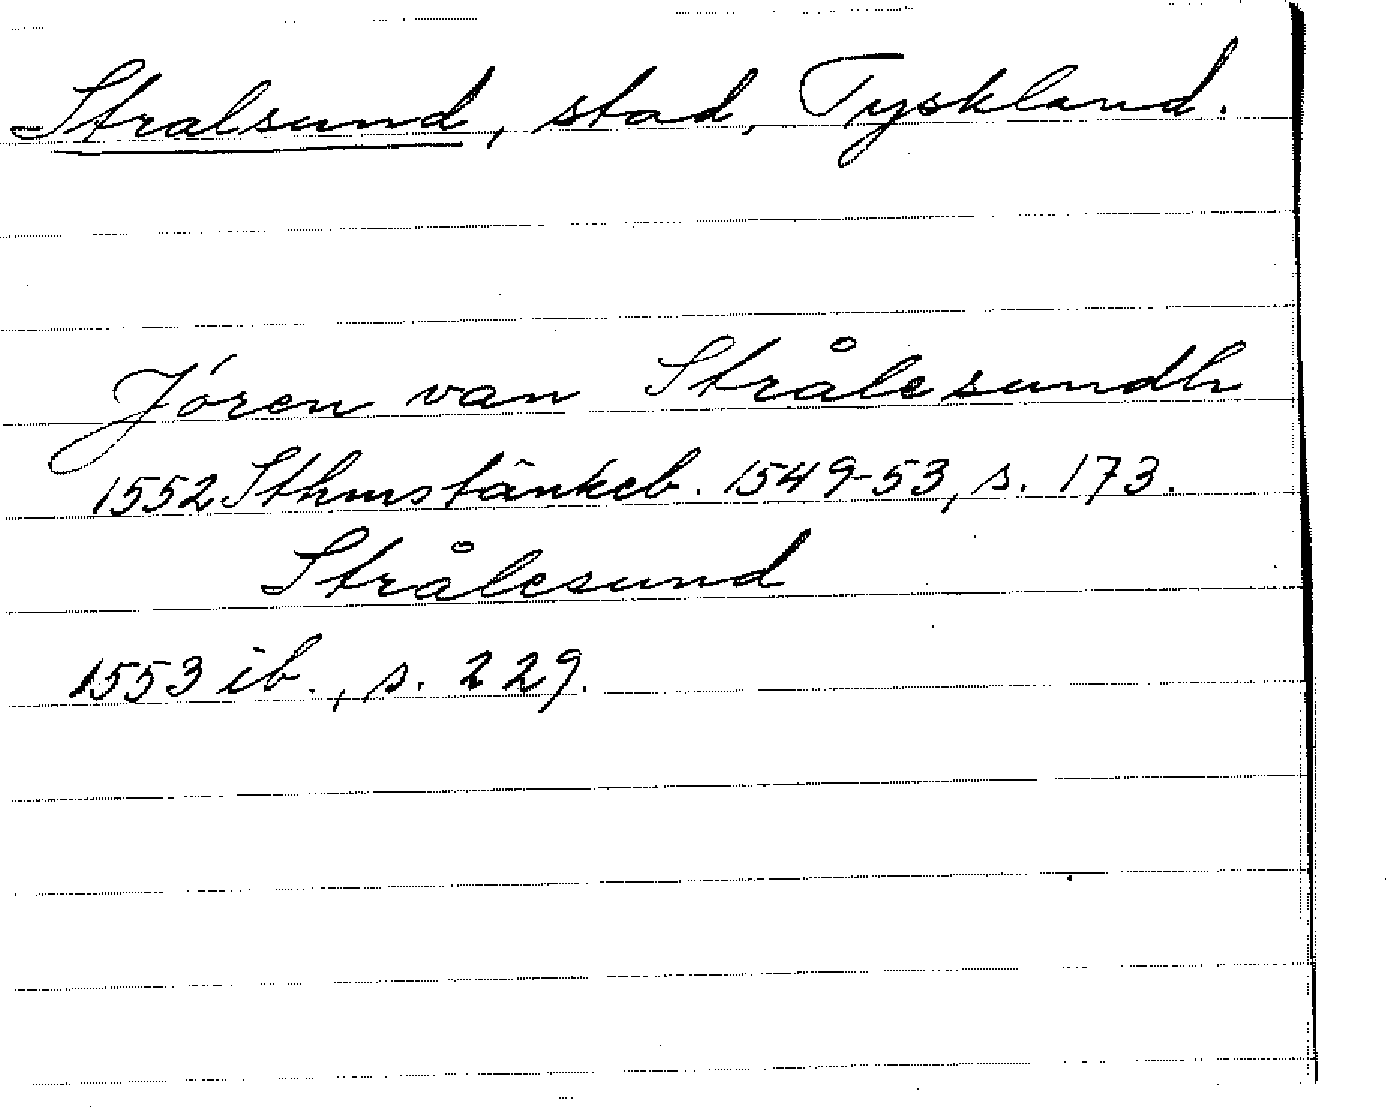 Stralsund, stad, Tyskland.
Jören van Strålesundh
1552 Sthmstänkeb. 1549-53, s. 173.
Strålesund
1553 ib., s. 229.